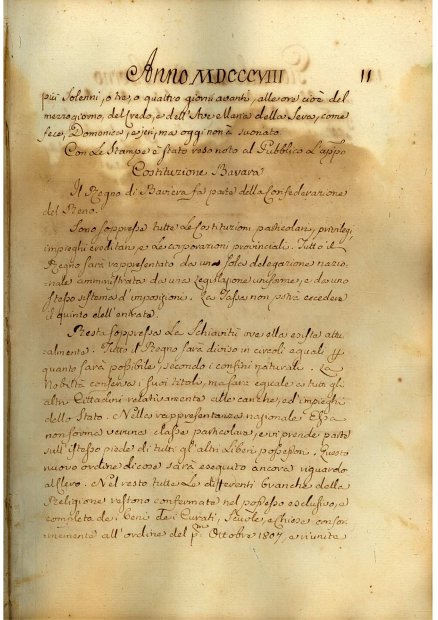 Anno MDCCCVIII 11
più Solenni, o tre, o quattro giorni avanti, alle ore cioè del
mezzogiorno, del Credo, e dell'Ave Maria della Sera, come
fece, Domenica, e jeri, ma oggi non à suonato.
Con Le Stampe è stato reso noto al Pubblico L'appo
Costituzione Bavara
Il Regno di Baviera fa parte della Confederazione
del Reno.
Sono soppresse tutte Le Costituzioni particolari, privilegj,
impieghi ereditarj, e Le corporazioni provinciali. Tutto il
Regno sarà rappresentato da una sola delegazione nazio-
nale amministrata da una legislazione uniforme, e da uno
stesso sistema d'imposizioni. La Tassa non potrà eccedere
il quinto dell'entrata.
Resta soppressa La Schiavitù ove ella esista attu-
ralmente. Tutto il Regno sarà diviso in circoli eguali p
quanto sarà possibile, secondo i confini naturali. La
Nobiltà conserva i suoi titoli, ma sarà eguale a tutti gli
altri Cittadini relativamente alle cariche, ed impieghi
dello Stato. Nella rappresentanza nazionale Essa
non forma veruna classe particolare, e vi prende parte
sull'istesso piede di tutti gl'altri Liberi possessori. Questo
nuovo ordine di cose sarà eseguito ancora riguardo
al Clero. Nel resto tutte Le differenti branche della
Religione restono confermate nel possesso esclusivo, e
completo de' Beni de' i Curati, Scuole, e Chiese confor-
memente all'ordine del p.mo Ottobre 1807, e riunita